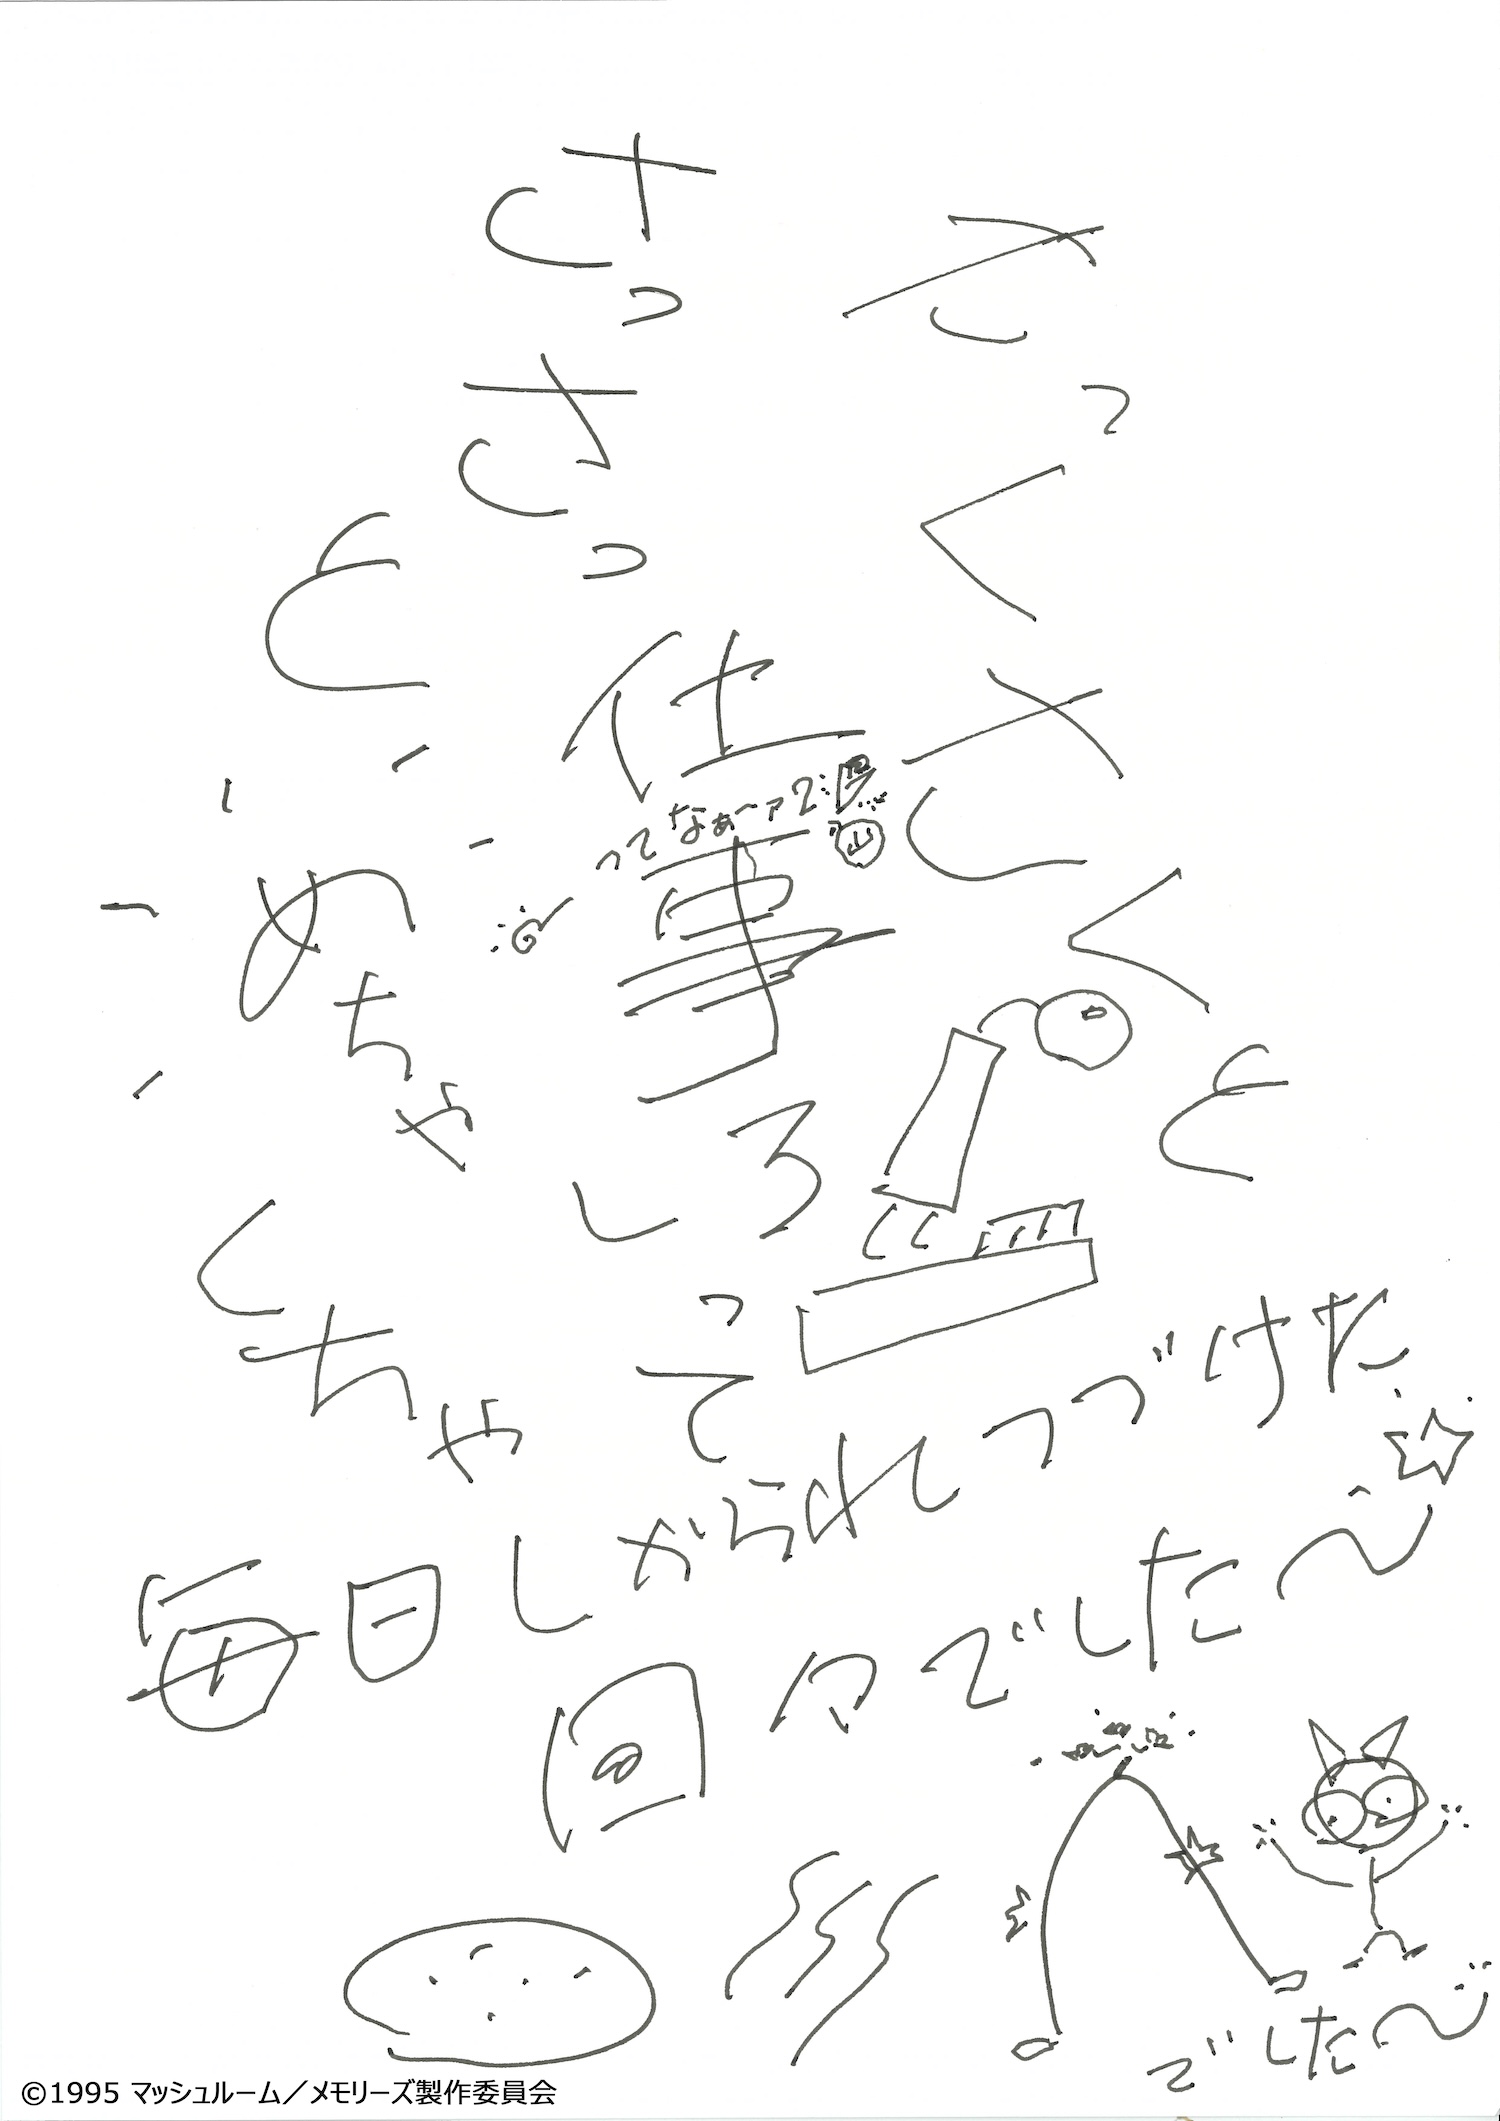 さっくさくと
さっさっ
仕事しろって
と
めちゃくちゃ
毎日しかられつづけた
日々でした〜
でした〜
©1995 マッシュルーム／メモリーズ製作委員会